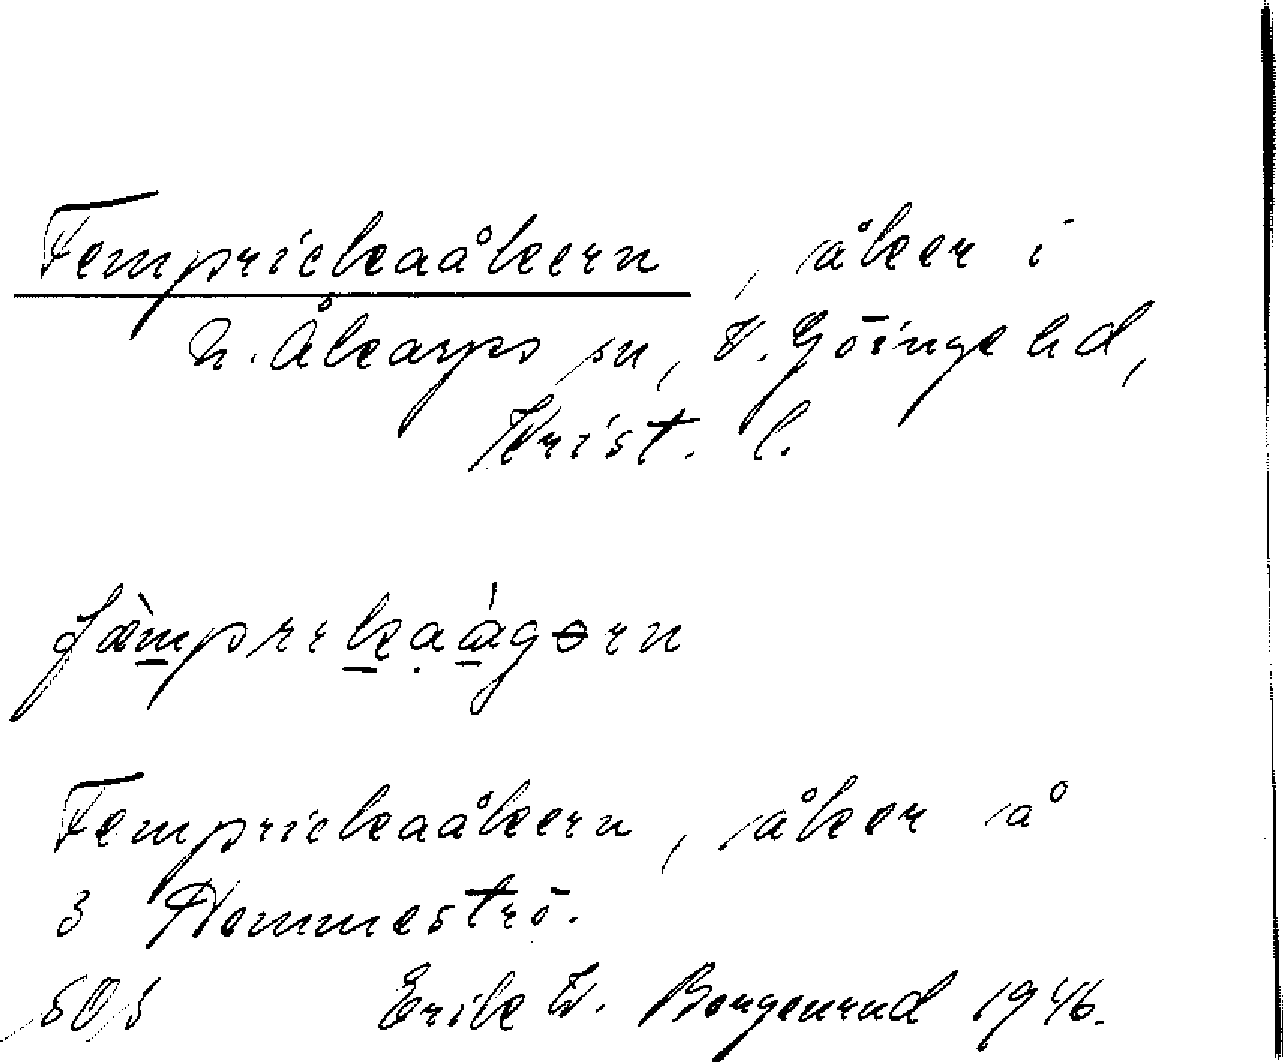 Femprickaåkern, åker i
N. Åkarps sn, V. Göinge hd,
Krist. l.
fæ̀mprikaågərn
Femprickaåkern, åker å
3 Hemmeströ.
Erik W. Bergenrud 1946.